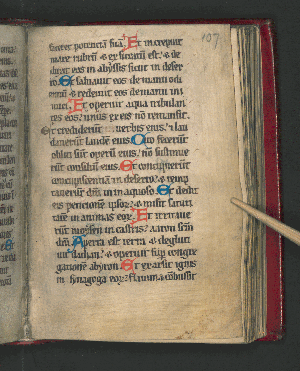 107
faceret potentiā suā. Et increpuit
mare rubrū & exsiccatū est. & de
duxit eos in abyssis sicut in deser
to. Et saluauit eos de manu odi
entiū & redemit eos de manu ini
mici. Et operuit aqua tribulan
tes eos. unus ex eis nō remansit.
Et crediderūt uerbis eius. & lau
dauerūt laudē eius. Cito fecerūt
obliti sūt operū eius. nō sustinue
rūt consiliū eius. Et concupierūt
concupiscentiā in deserto. & temp
tauerūt dm̄ in aquoso. Et dedit
eis petitionē ipsoꝝ. & misit saturi
tatē in animas eoꝝ. Et irritaue
rūt moysen in castris. aaron scm̄
dn̄i. Aperta est terra & degluti
uit dathan. & operuit sup congre
gationē abyron. Et exarsit ignis
in synagoga eoꝝ. flamma cōbussit